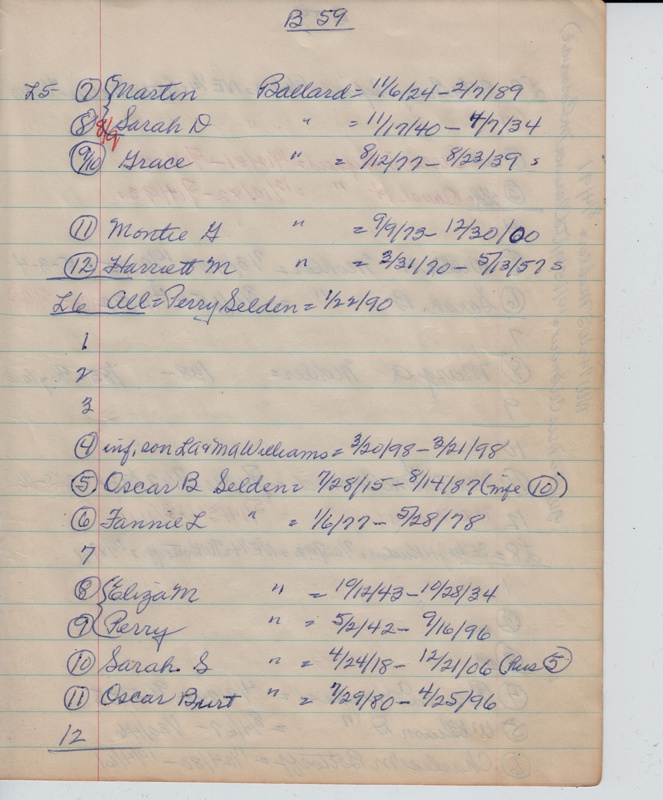 B 59
L5- 7 Martin Ballard = 11/6/24 - 2/7/89
8 8/9 Sarah D " = 11/17/40 - 4/7/34
9/10 Grace " = 8/12/77 - 8/23/39 s
11 Montie G " = 9/9/73 - 12/30/00
12 Harriett M " = 3/31/70 - 5/13/57 s
L6 All = Perry Selden = 1/22/90
1
2
3
4 inf, son LA & MA Williams = 3/20/98 - 3/21/98
5 Oscar B Selden = 7/28/15 - 8/14/87 (wife 10)
6 Fannie L " = 1/6/77 - 5/28/78
7
8 Eliza M " = 10/12/43 - 10/28/34
9 Perry " = 5/2/42 - 9/16/96
10 Sarah S " = 4/24/18 - 12/21/06 (hus 5)
11 Oscar Burt " = 7/29/80 - 4/25/96
12